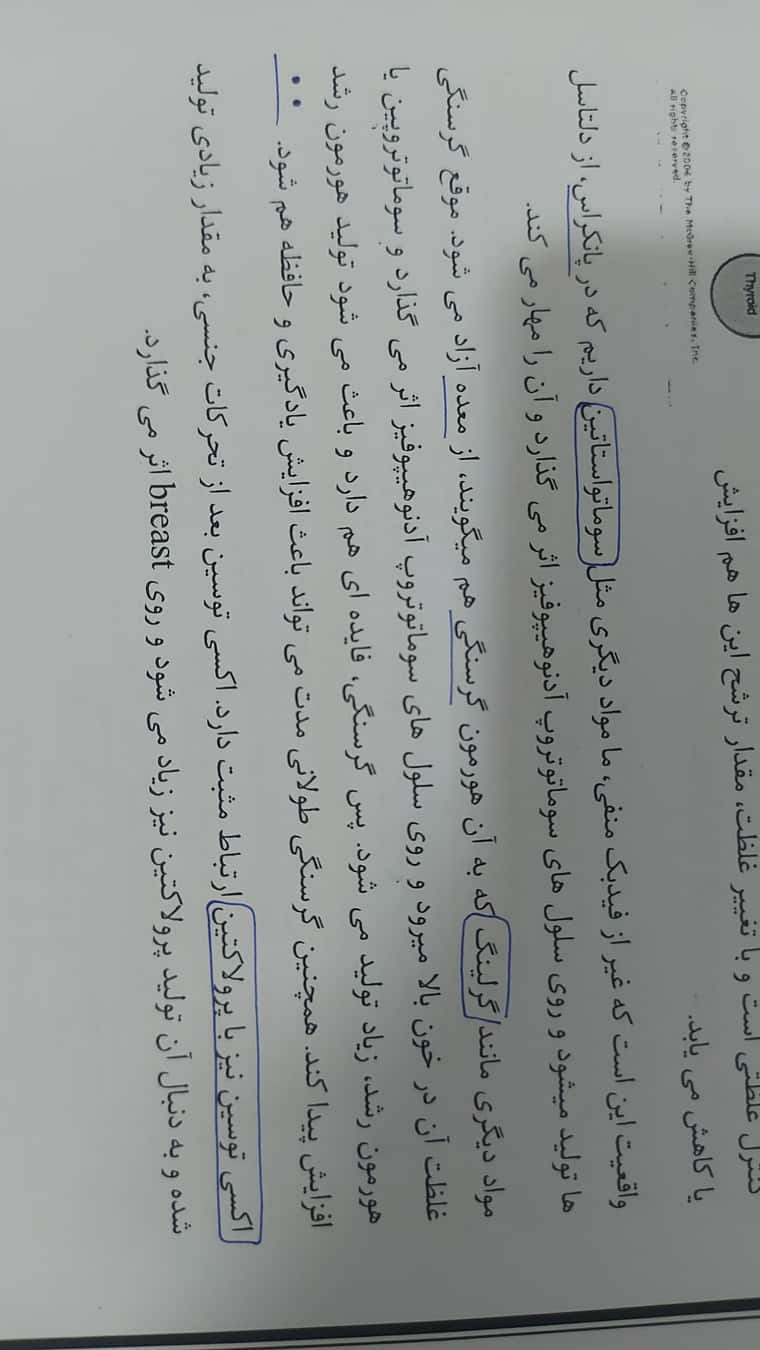 Thyroid
Copyright © 2006 by The McGraw-Hill Companies, Inc.
All rights reserved.
کنترل غلظتی است و با تغییر غلظت، مقدار ترشح این ها هم افزایش
یا کاهش می یابد.
واقعیت این است که غیر از فیدبک منفی، ما مواد دیگری مثل سوماتواستاتین داریم که در پانکراس، از دلتاسل
ها تولید میشود و روی سلول های سوماتوتروپ آدنوهیپوفیز اثر می گذارد و آن را مهار می کند.
مواد دیگری مانند گرلینگ که به آن هورمون گرسنگی هم میگویند، از معده آزاد می شود. موقع گرسنگی
غلظت آن در خون بالا میرود و روی سلول های سوماتوتروپ آدنوهیپوفیز اثر می گذارد و سوماتوتروپین یا
هورمون رشد، زیاد تولید می شود. پس گرسنگی، فایده ای هم دارد و باعث می شود تولید هورمون رشد
افزایش پیدا کند. همچنین گرسنگی طولانی مدت می تواند باعث افزایش یادگیری و حافظه هم شود.
اکسی توسین نیز با پرولاکتین ارتباط مثبت دارد. اکسی توسین بعد از تحرکات جنسی، به مقدار زیادی تولید
شده و به دنبال آن تولید پرولاکتین نیز زیاد می شود و روی breast اثر می گذارد.